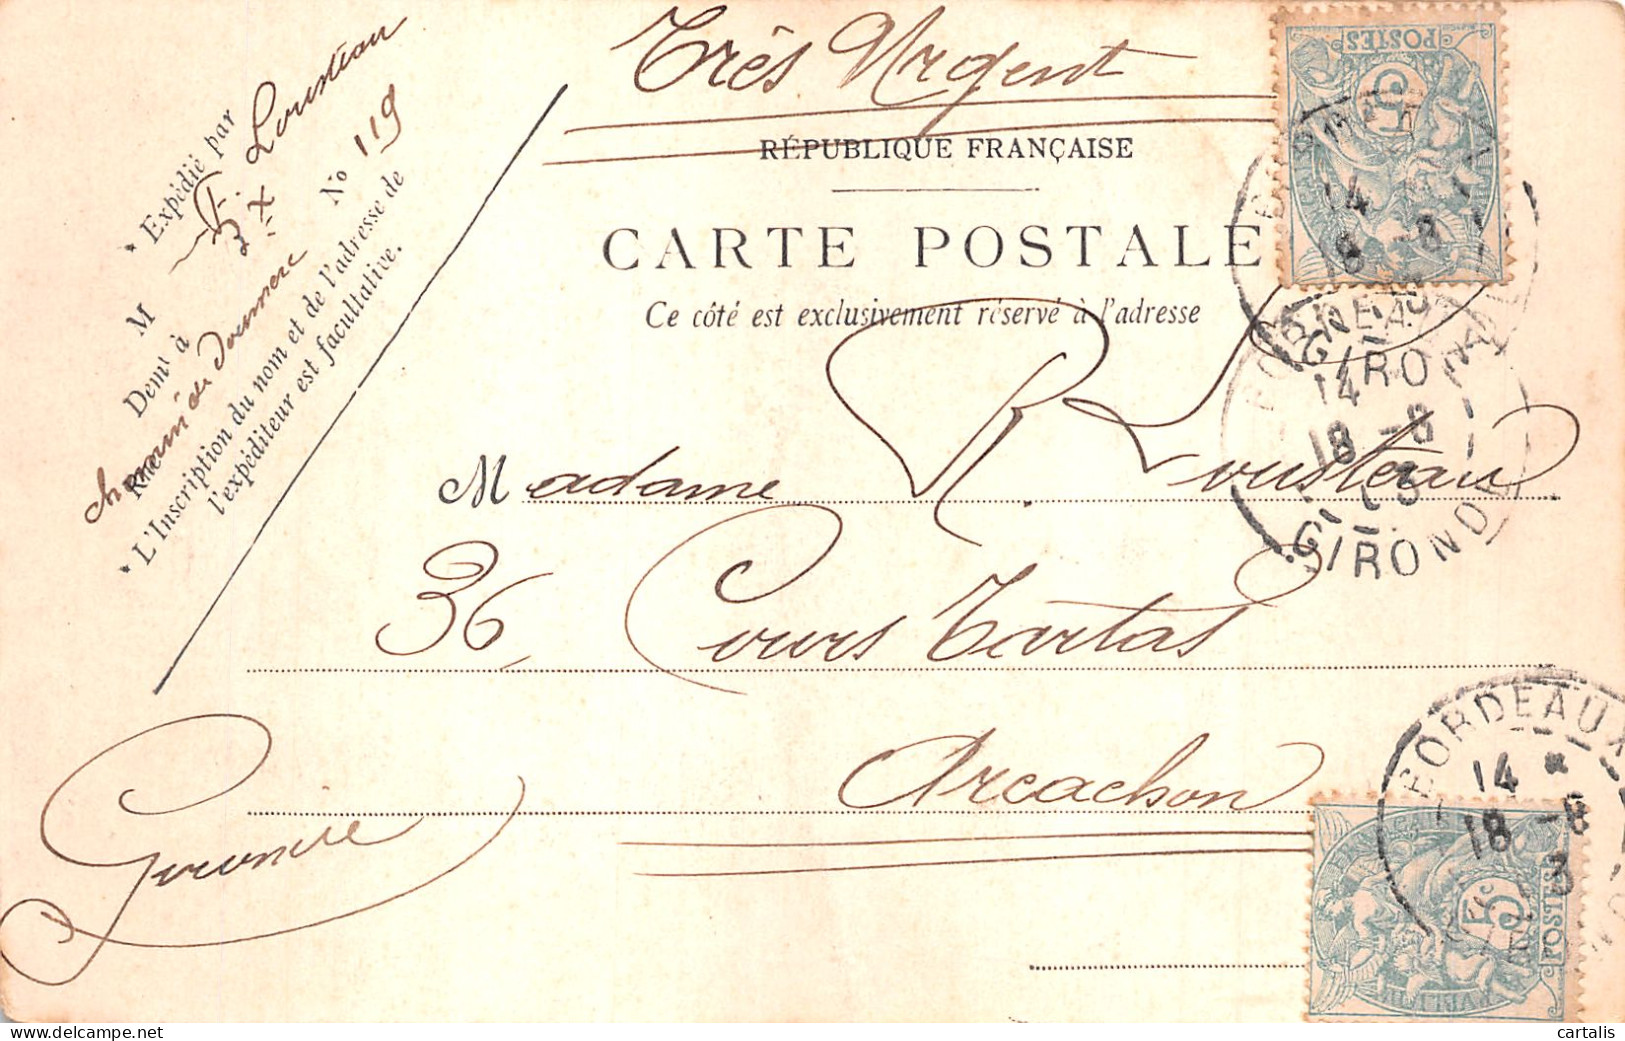 Très Urgent
RÉPUBLIQUE FRANÇAISE
CARTE POSTALE
Ce côté est exclusivement réservé à l'adresse
* Expédié par
M Lousteau
Demt à Bx
chemin de Doumerc No 119
* L'Inscription du nom et de l'adresse de
l'expéditeur est facultative.
Madame R. Lousteau
36 Cours Tartas
Arcachon
Gironde
POSTES
5c
BORDEAUX
14
18 -8
GIRONDE
BORDEAUX
14
18 -8
03
GIRONDE
BORDEAUX
14 *
18 -8
3
5c
POSTES
delcampe.net
cartalis